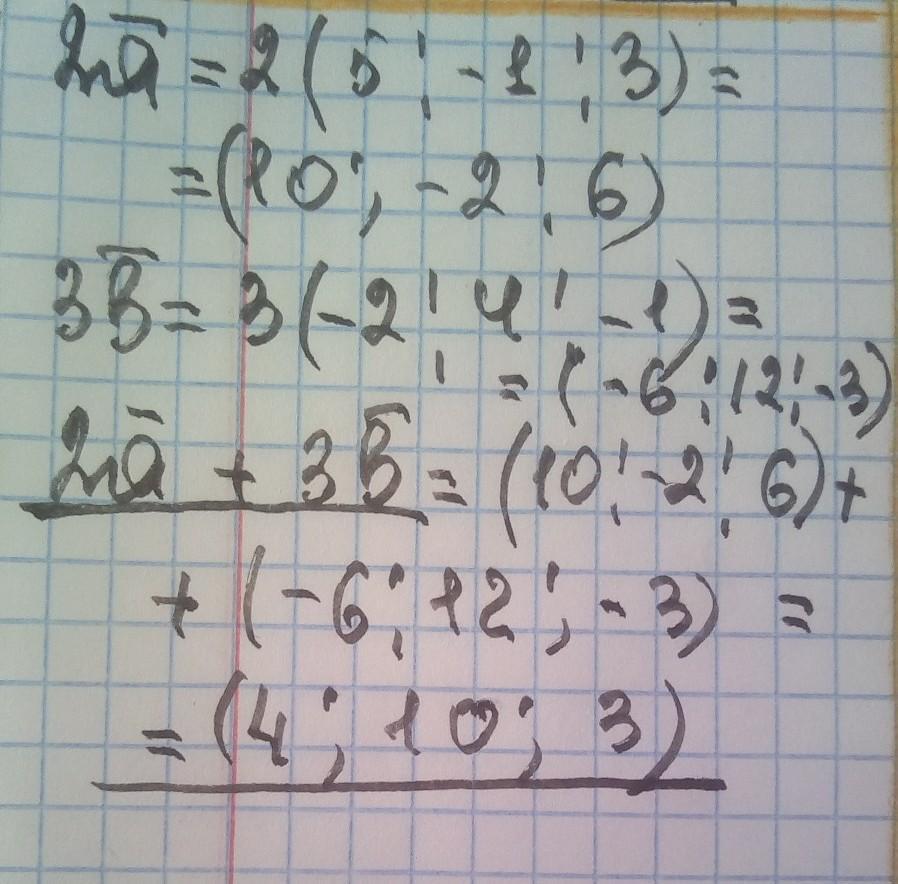 2a̅ = 2(5; -1; 3) =
= (10; -2; 6)
3b̅ = 3(-2; 4; -1) =
= (-6; 12; -3)
2a̅ + 3b̅ = (10; -2; 6) +
+ (-6; 12; -3) =
= (4; 10; 3)